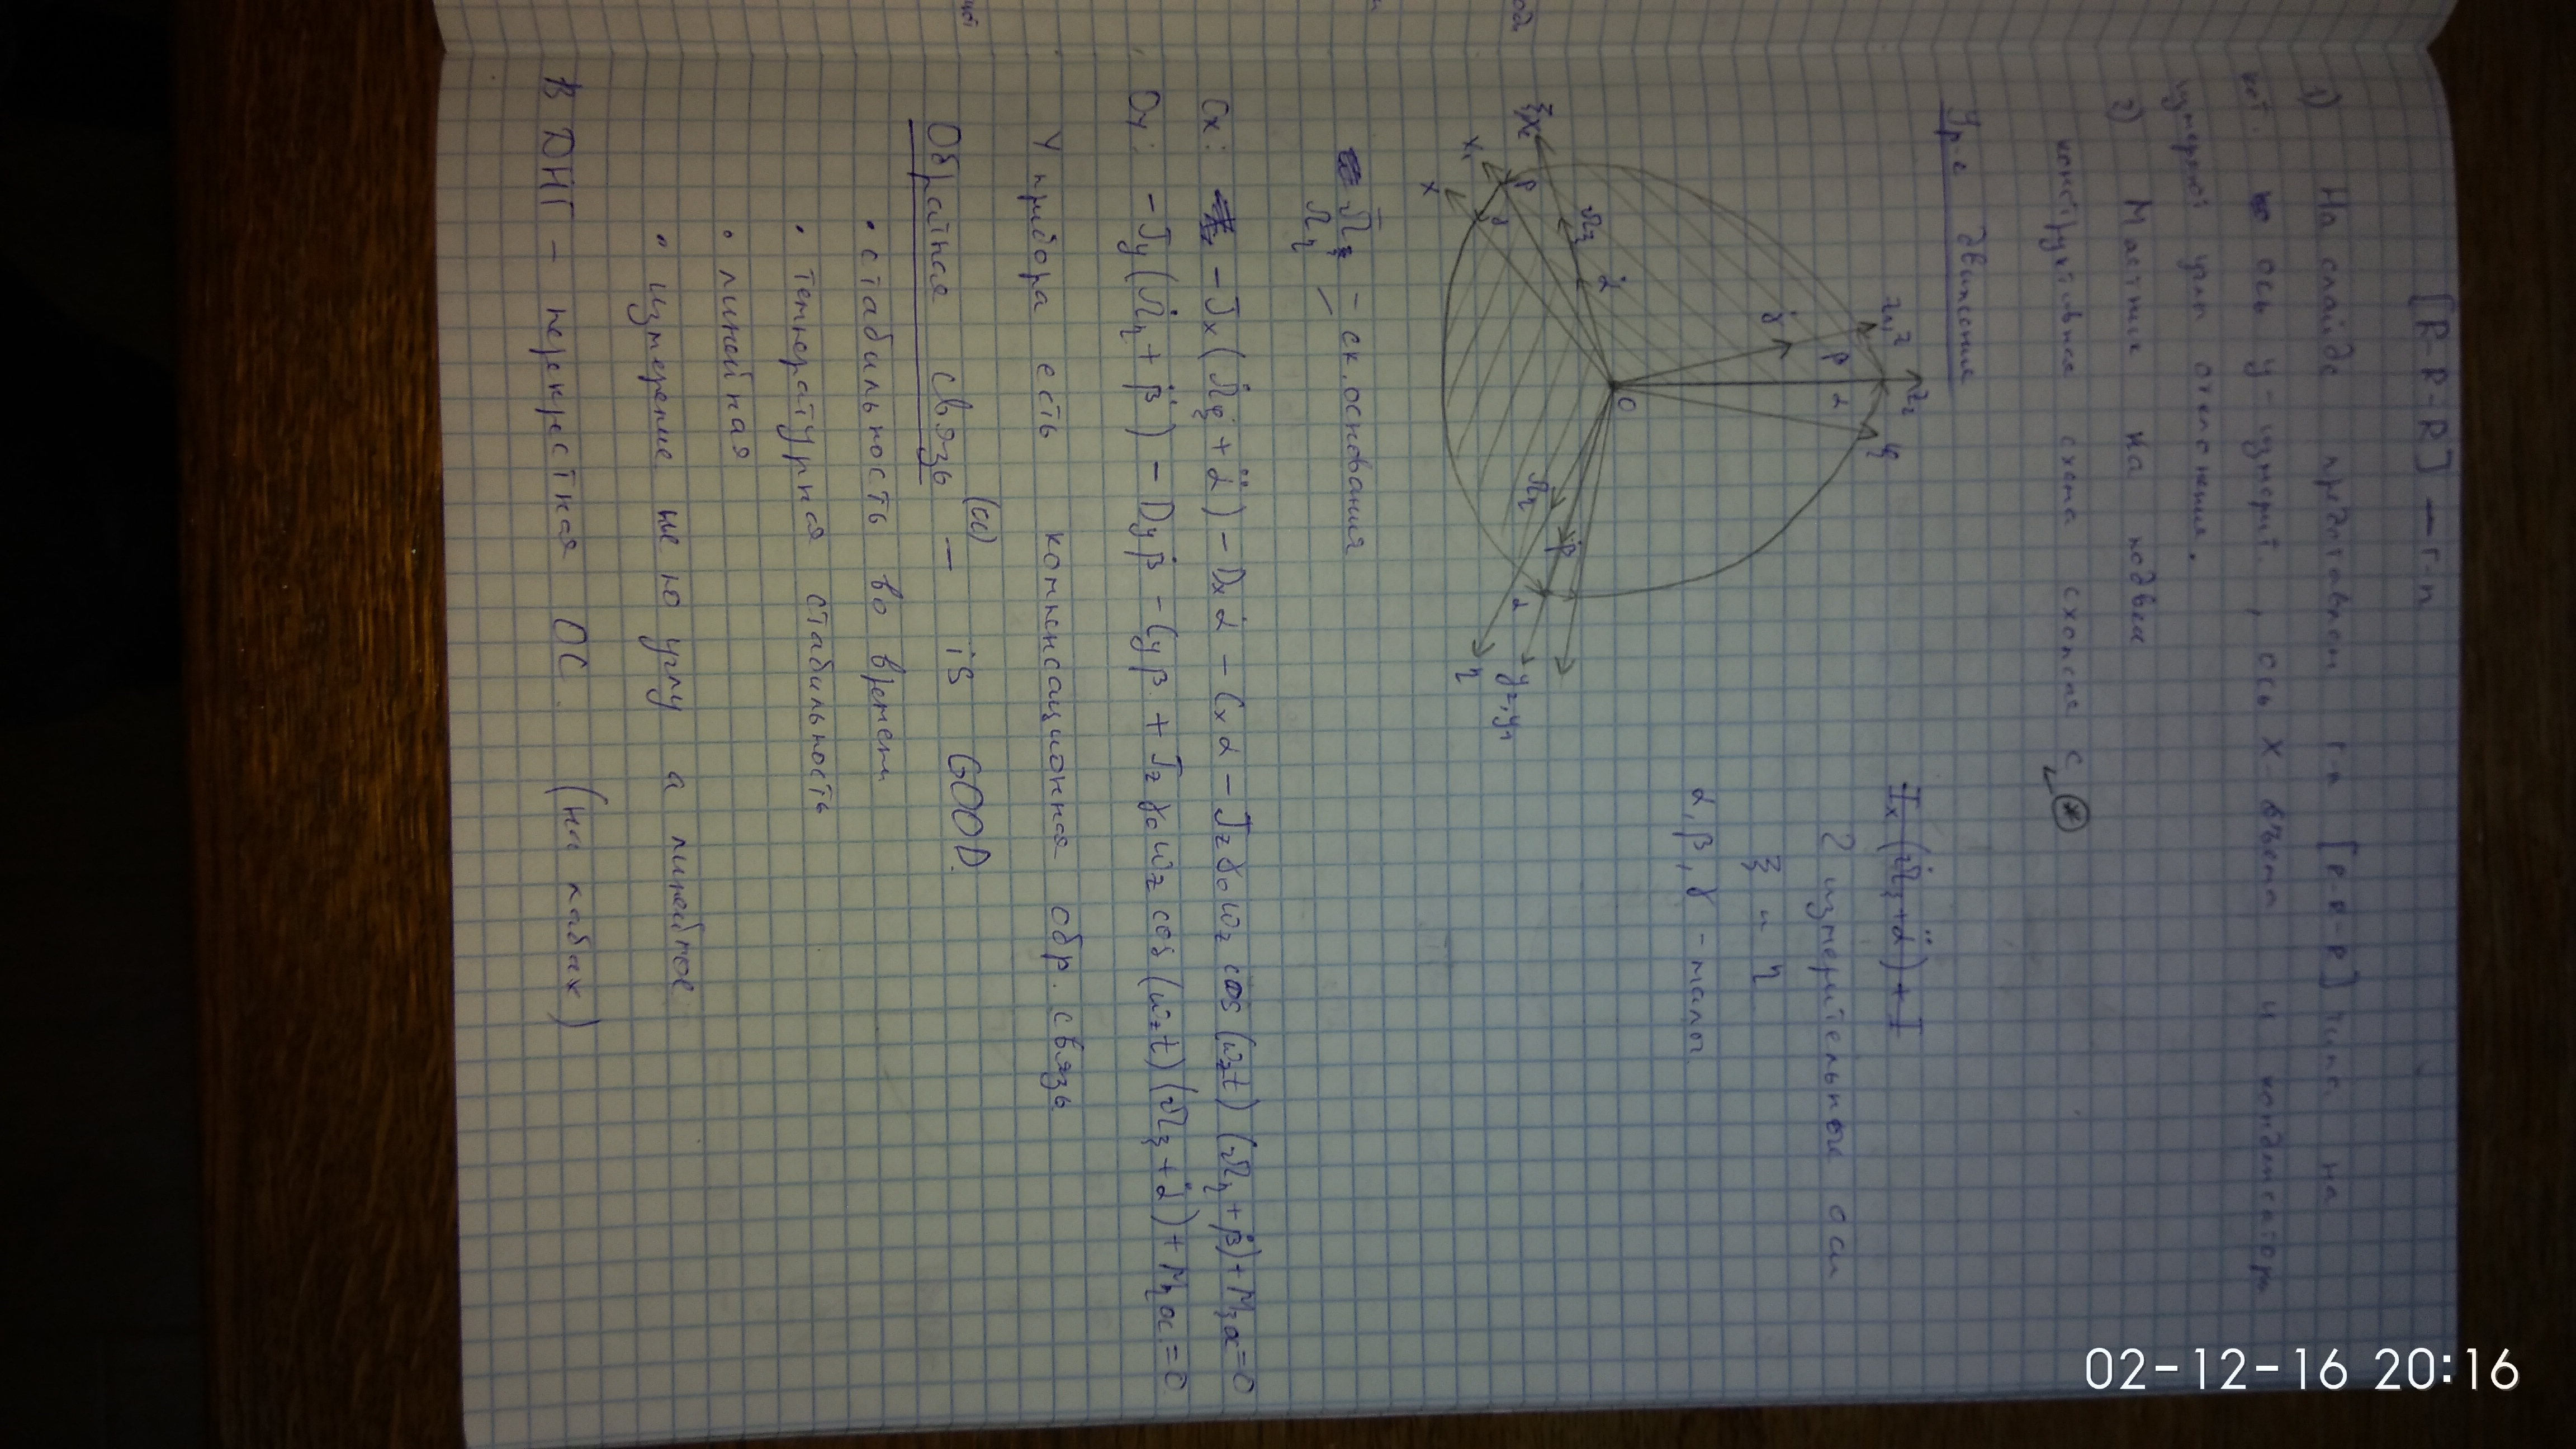 [R-R-R] — г-п
1) На слайде представлен г-п [R-R-R] типа на
кот. ось y - измерит., ось X - съема и конденсатора
измерений угла отклонения.
2) Маятник на подвесе
конструктивная схема схожая с ⊛
Ур-е движения
Jx(Ω̇ξ + α̈) + J
2 измерительные оси
ξ и η
α, β, γ - малы
z1, z
z2
ζ
γ̇
β
α
O
Ωξ
α̇
ξ x2
x1
x
β
γ
Ωη
β̇
α
y2, y1
η
Ωξ - ск. основания
Ωη
Ox: - Jx(Ω̇ξ + α̈) - Dxα̇ - Cxα - Jzγ0ωz cos(ωzt)(Ωη + β̇) + Mξос = 0
Oy: - Jy(Ω̇η + β̈) - Dyβ̇ - Cyβ + Jzγ0ωz cos(ωzt)(Ωξ + α̇) + Mηос = 0
У прибора есть компенсационная обр. связь
Обратная связь (ОС) — is GOOD.
• стабильность во времени
• температурная стабильность
• линейная
• измерение не по углу а линейное
В ДНГ - перекрестная ОС. (на лабах)
02-12-16 20:16